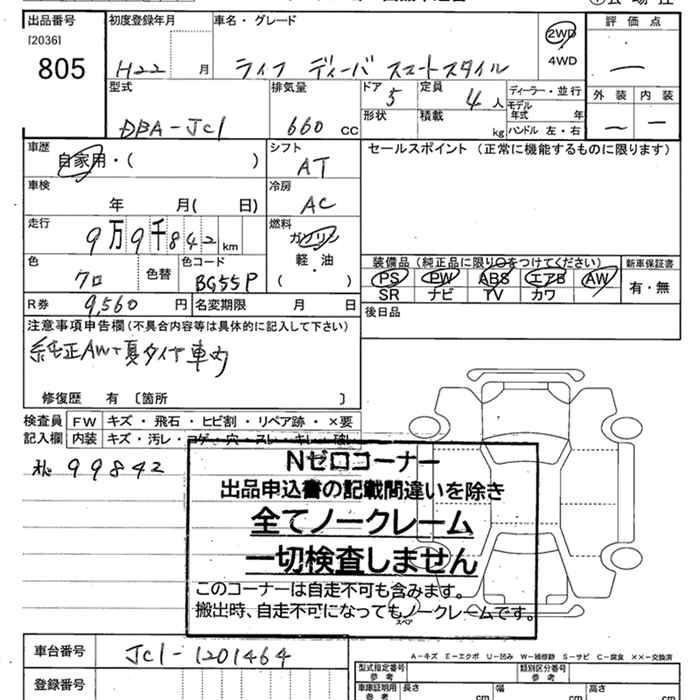 出品番号 初度登録年月 車名・グレード 評価点
[2036]
805 H22 月 ライフ ディーバ スマートスタイル 2WD ―
4WD
型式 排気量 ドア 定員 ディーラー・並行 外装 内装
5 4人 モデル年式 年
DBA-JC1 660 CC 形状 積載 kg ハンドル 左・右 ― ―
車歴 シフト セールスポイント (正常に機能するものに限ります)
自家用・( ) AT
車検 冷房
年 月( 日) AC
走行 燃料
9万9千842km ガソリン
軽・油
色 色コード ( ) 装備品 (純正品に限り○をつけてください) 新車保証書
クロ 色替 BG55P PS PW ABS エアB AW 有・無
SR ナビ TV カワ
R券 9,560円 名変期限 月 日 後日品
注意事項申告欄(不具合内容等は具体的に記入して下さい)
純正AW+夏タイヤ車内
修復歴 有 〔箇所 〕
検査員 FW キズ・飛石・ヒビ割・リペア跡・×要
記入欄 内装 キズ・汚レ・コゲ・穴・スレ・キレ・破レ
99842
Nゼロコーナー
出品申込書の記載間違いを除き
全てノークレーム
一切検査しません
このコーナーは自走不可も含みます。
搬出時、自走不可になってもノークレームです。
スペア
A-キズ E-エクボ U-凹み W-補修跡 S-サビ C-腐食 ××-交換済
車台番号 JC1-1201464 型式指定番号 参考 類別区分番号 参考
登録番号 車庫証明用 参考 長さ cm 幅 cm 高さ cm